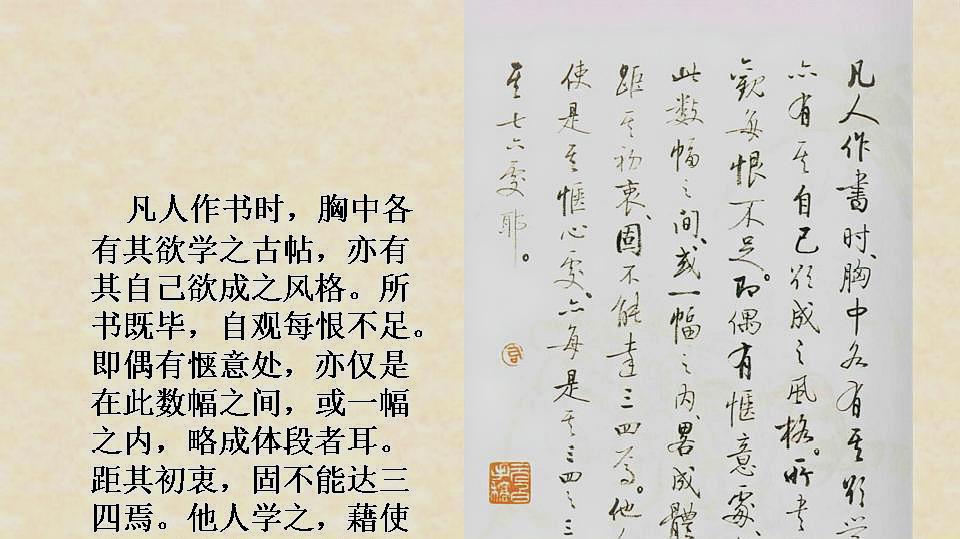 凡人作书时，胸中各
有其欲学之古帖，亦有
其自己欲成之风格。所
书既毕，自观每恨不足。
即偶有惬意处，亦仅是
在此数幅之间，或一幅
之内，略成体段者耳。
距其初衷，固不能达三
四焉。他人学之，藉使
凡人作書时、胸中各有其欲学
亦有其自己欲成之風格。所书
觀每恨不足。即偶有愜意處、
此数幅之间、或一幅之内、畧成體
距其初衷、固不能達三四焉。他
使是其愜心處、亦每是其三四之三
其七六處耶。